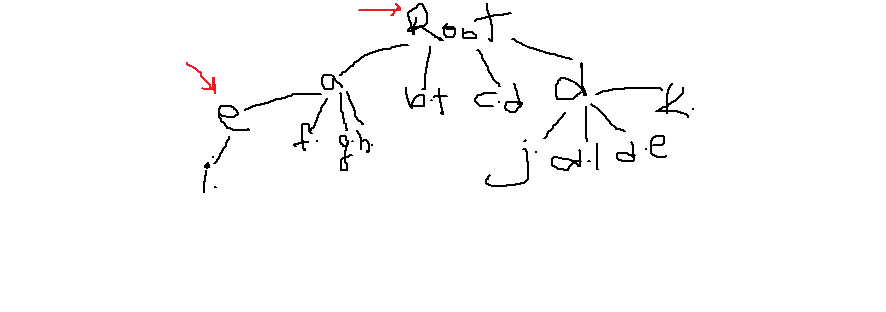 Root
a b.t c.d d
e f. g.h. j. d.l d.e k.
i.